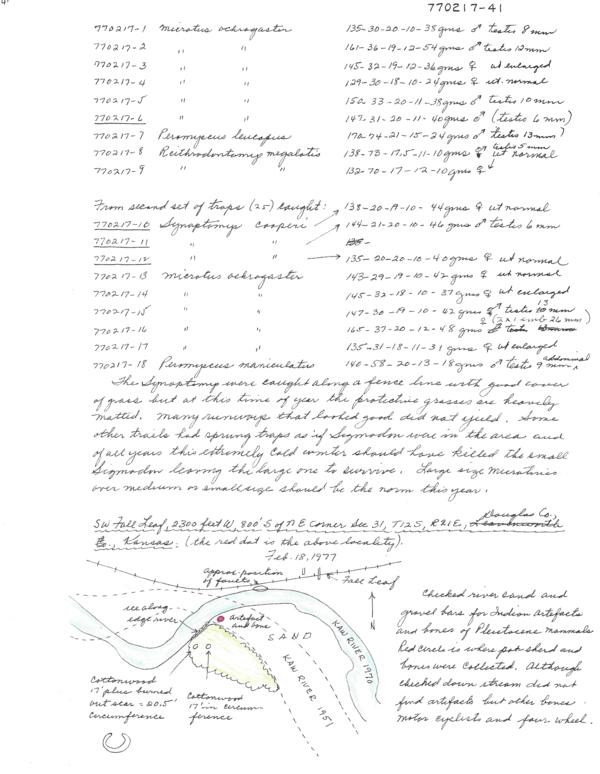 770217-41
770217-1 Microtus ochrogaster 135-30-20-10-38gms ♂ testis 8 mm
770217-2 " " 161-36-19-12-54gms ♂ testis 12mm
770217-3 " " 145-32-19-12-36gms ♀ ut enlarged
770217-4 " " 129-30-18-10-24gms ♀ ut. normal
770217-5 " " 150-33-20-11-38gms ♂ testis 10mm
770217-6 " " 147-31-20-11-40gms ♂ (testis 6 mm)
770217-7 Peromyscus leucopus 170-74-21-15-24gms ♂ testis 13mm
770217-8 Reithrodontomys megalotis 138-73-17.5-11-10gms ♂ testis 5mm
770217-9 " " 132-70-17-12-10gms ♀ ut normal
From second set of traps (25) caught: 138-20-19-10-44gms ♀ ut normal
770217-10 Synaptomys cooperi 144-21-20-10-46gms ♂ testis 6 mm
770217-11 " "
770217-12 " " 135-20-20-10-40gms ♀ ut normal
770217-13 Microtus ochrogaster 143-29-19-10-42gms ♀ ut normal
770217-14 " " 145-32-18-10-37gms ♀ ut enlarged
770217-15 " " 147-30-19-10-42gms ♂ testis 13 mm
770217-16 " " 165-37-20-12-48gms ♀ (2x1 emb 26 mm)
770217-17 " " 135-31-18-11-31gms ♀ ut enlarged
770217-18 Peromyscus maniculatus 140-58-20-13-18gms ♂ testis 9mm abdominal
The Synaptomys were caught along a fence line with good cover
of grass but at this time of year the protective grasses are heavily
matted. Many runways that looked good did not yield. Some
other trails had sprung traps as if Sigmodon were in the area and
of all years this extremely cold winter should have killed the small
Sigmodon leaving the large one to survive. Large size Microtines
over medium or small size should be the norm this year.
SW Fall Leaf, 2300 feet W, 800' S of NE Corner Sec 31, T12S, R21E, Douglas Co.,
Leavenworth
Co., Kansas. (the red dot is the above locality).
Feb. 18, 1977
approx. position
of faults
Fall Leaf
ice along
edge river
artefact
and bone
SAND
KAW RIVER 1970
KAW RIVER 1951
Cottonwood
17' plus burned
out scar = 20.5'
circumference
Cottonwood
17' in circum-
ference
Checked river sand and
gravel bars for Indian artefacts
and bones of Pleistocene mammals
Red circle is where pot sherd and
bones were collected. Although
checked down stream did not
find artefacts but other bones.
Motor cyclists and four wheel.